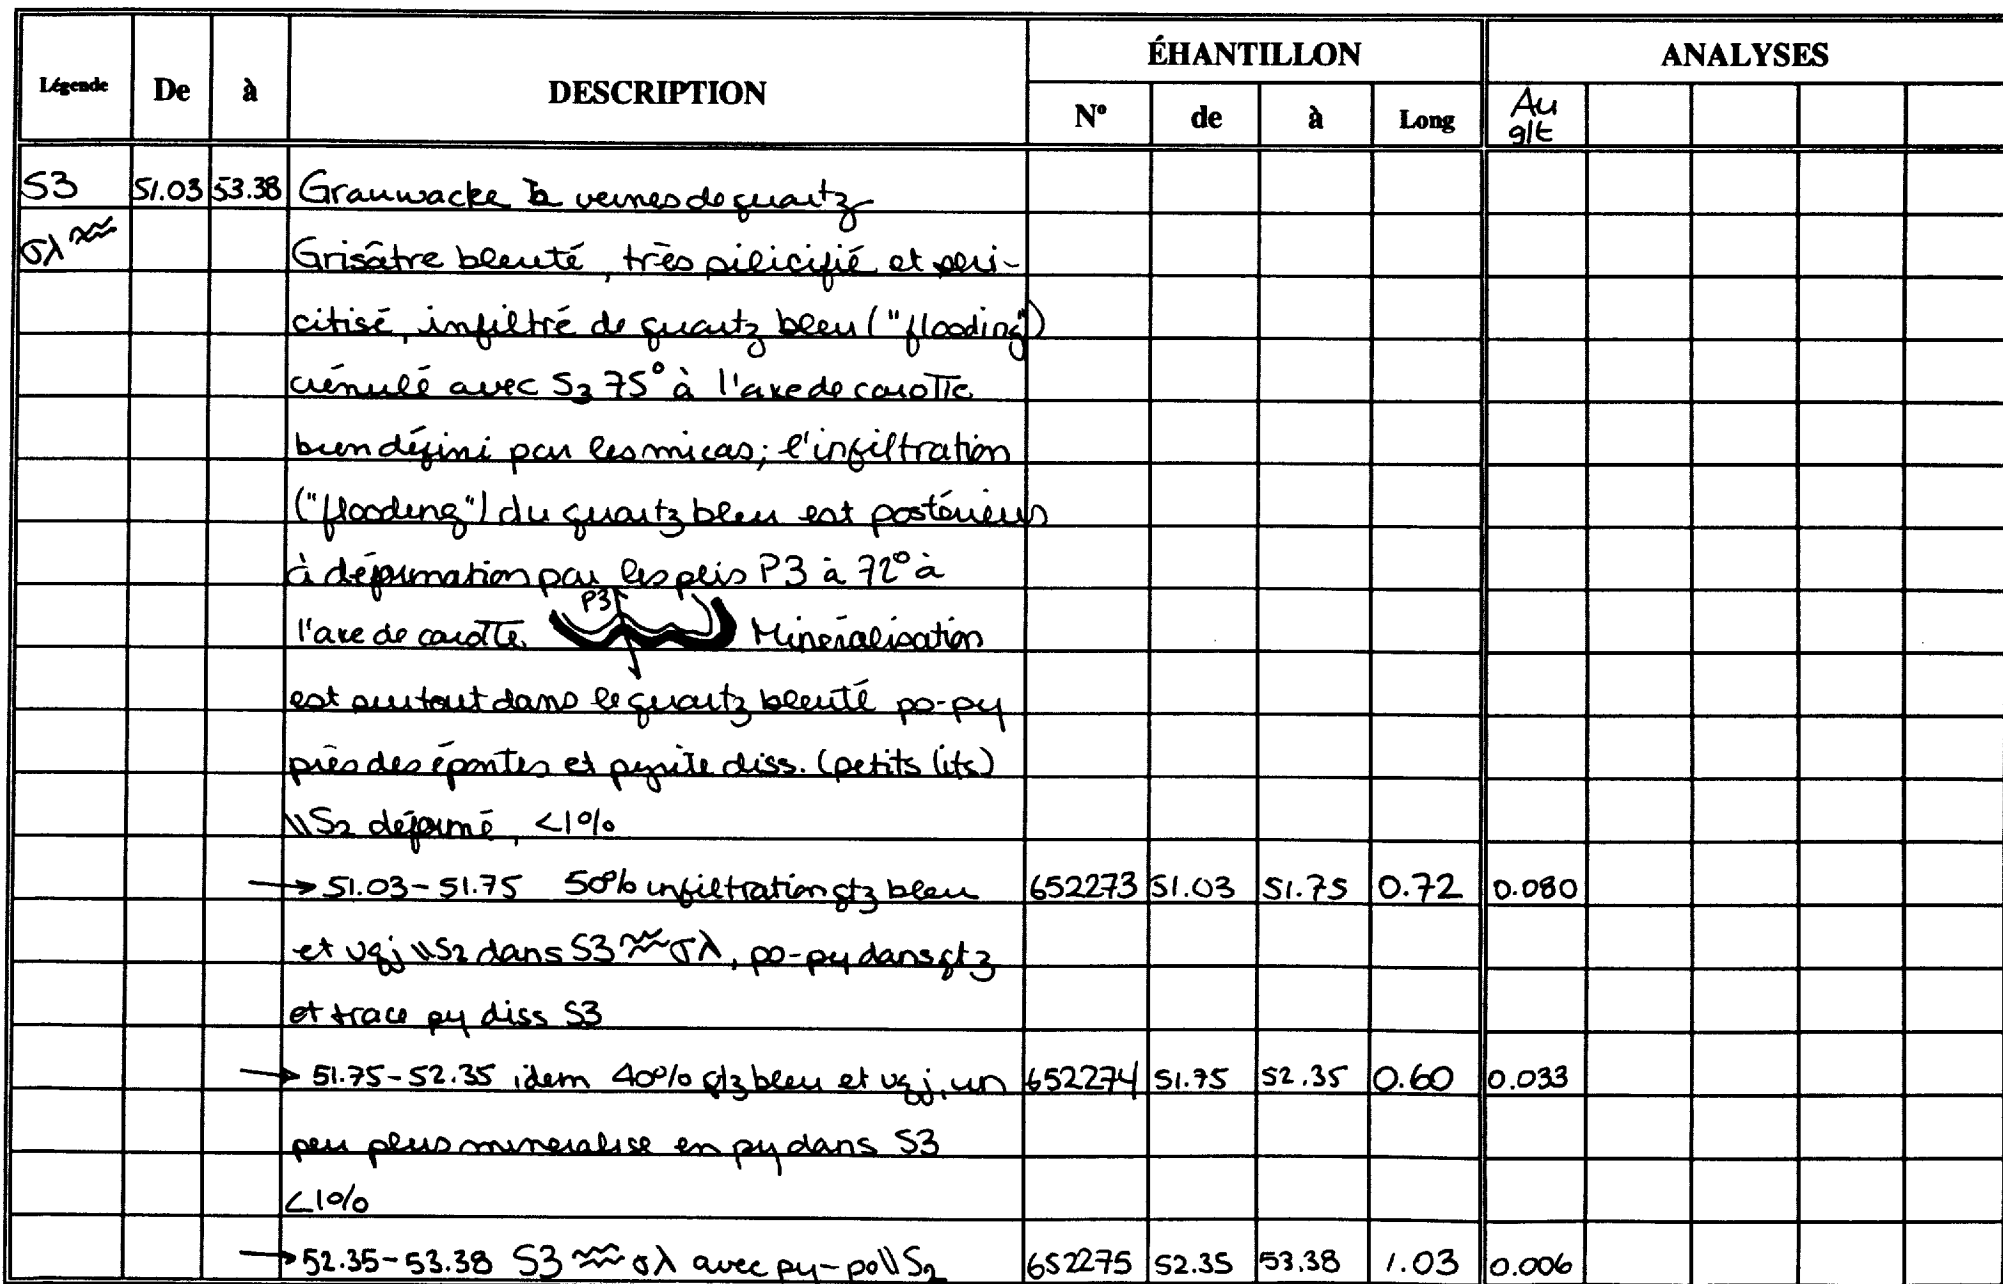 ÉHANTILLON ANALYSES
Légende De à DESCRIPTION N° de à Long Au g/t
S3 51.03 53.38 Grauwacke à veines de quartz
σλ ≈ Grisâtre bleuté, très silicifié et séri-
citisé, infiltré de quartz bleu ("flooding")
crénulé avec S3 75° à l'axe de carotte
bien défini par les micas; l'infiltration
("flooding") du quartz bleu est postérieur
à déformation par les plis P3 à 72° à
P3
l'axe de carotte Minéralisation
est surtout dans le quartz bleuté po-py
près des épontes et pyrite diss. (petits lits)
\\S2 déformé, <1%
→ 51.03-51.75 50% infiltration qtz bleu 652273 51.03 51.75 0.72 0.080
et vqj \\S2 dans S3 ≈ σλ, po-py dans qtz
et trace py diss S3
→ 51.75-52.35 idem 40% qtz bleu et vqj, un 652274 51.75 52.35 0.60 0.033
peu plus mineralise en py dans S3
<1%
→ 52.35-53.38 S3 ≈ σλ avec py-po \\S2 652275 52.35 53.38 1.03 0.006